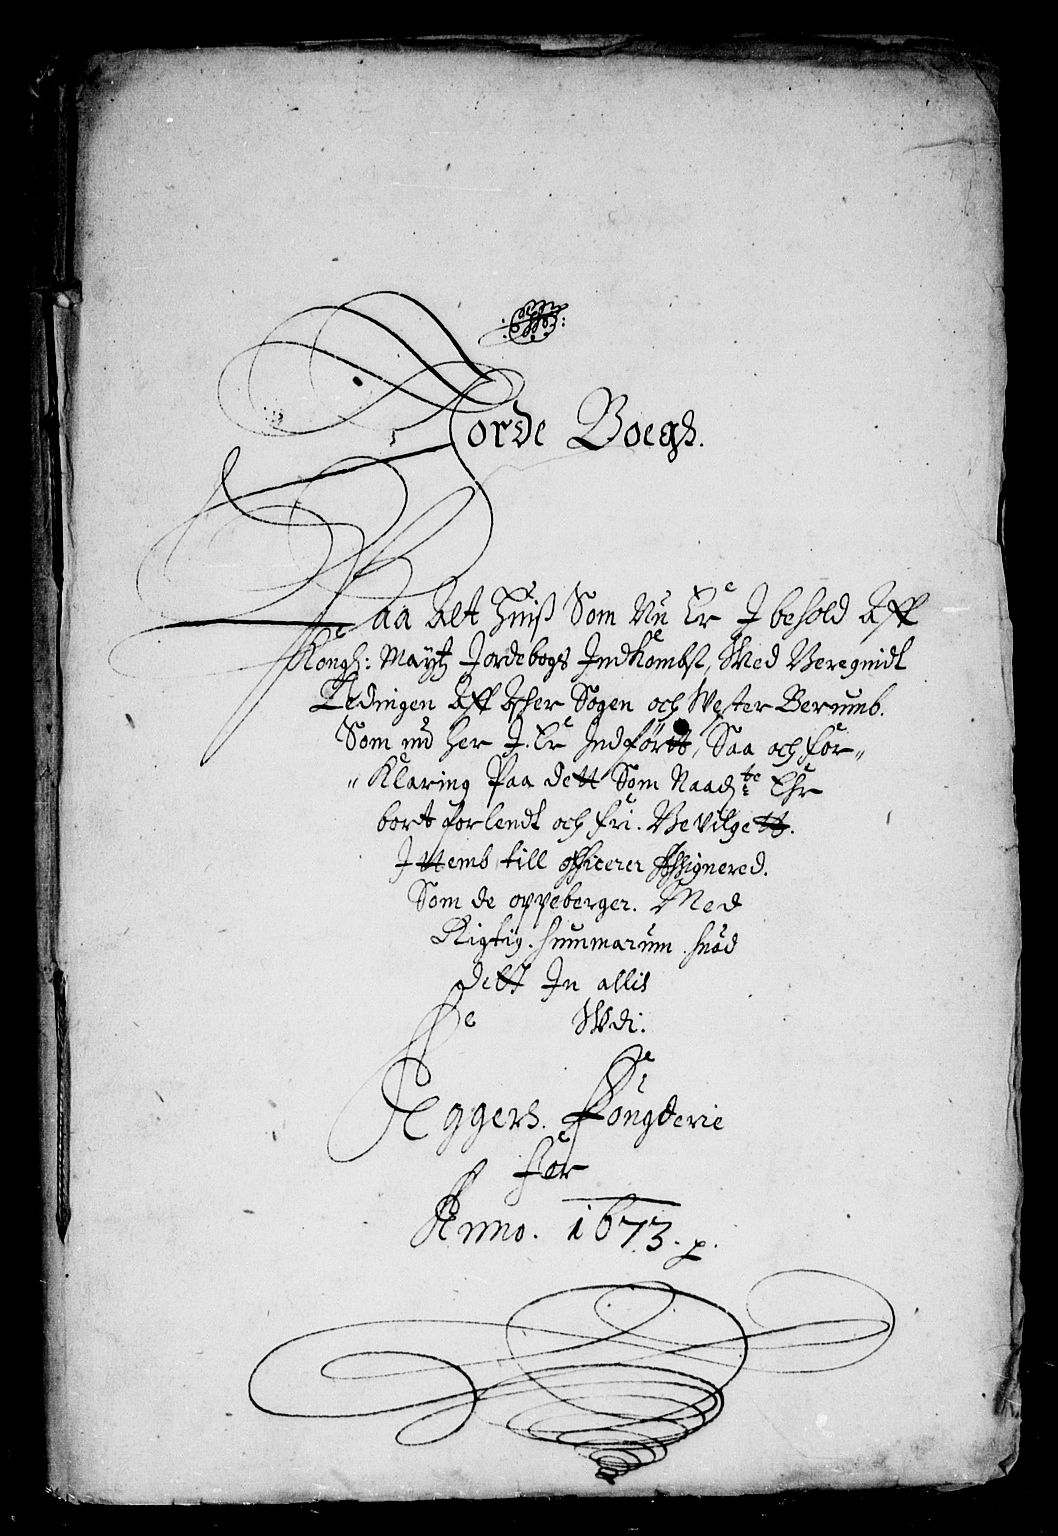 Jorde Boegh.
Paa Alt huiss Som Nu Er J behold Aff
Kongh: Maytz Jordebogs Jndkombst, Med Beregnidt
Ledingen Aff Asker Sogen och Wester Berumb.
Som nu her J. Er Jndførtt, Saa och for„
„Klaring Paa dett Som Naadgste Ehr
bort forlendt och fri. Bevilgett.
Jttemb till officerer Assignered.
Som de oppeberger. Med
Rigtig. summarum
dett Jn allis
Eggers. Fougderie
for
Anno. 1673. p.